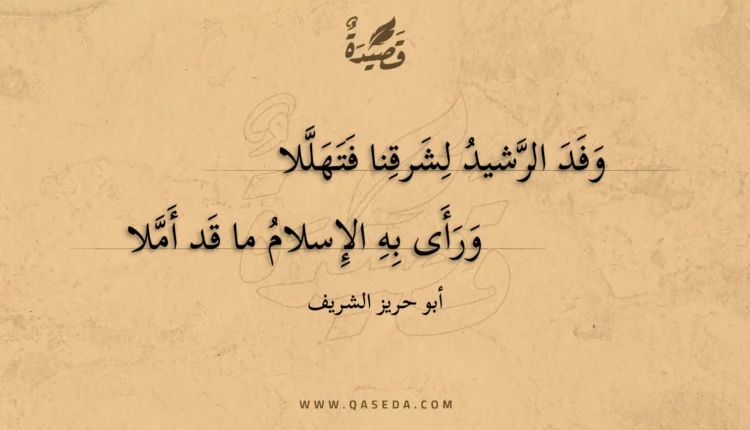 قَصِيْدَةٌ
وَفَدَ الرَّشيدُ لِشَرقِنا فَتَهَلَّلا
وَرَأَى بِهِ الإِسلامُ ما قَد أَمَّلا
أبو حريز الشريف
WWW.QASEDA.COM